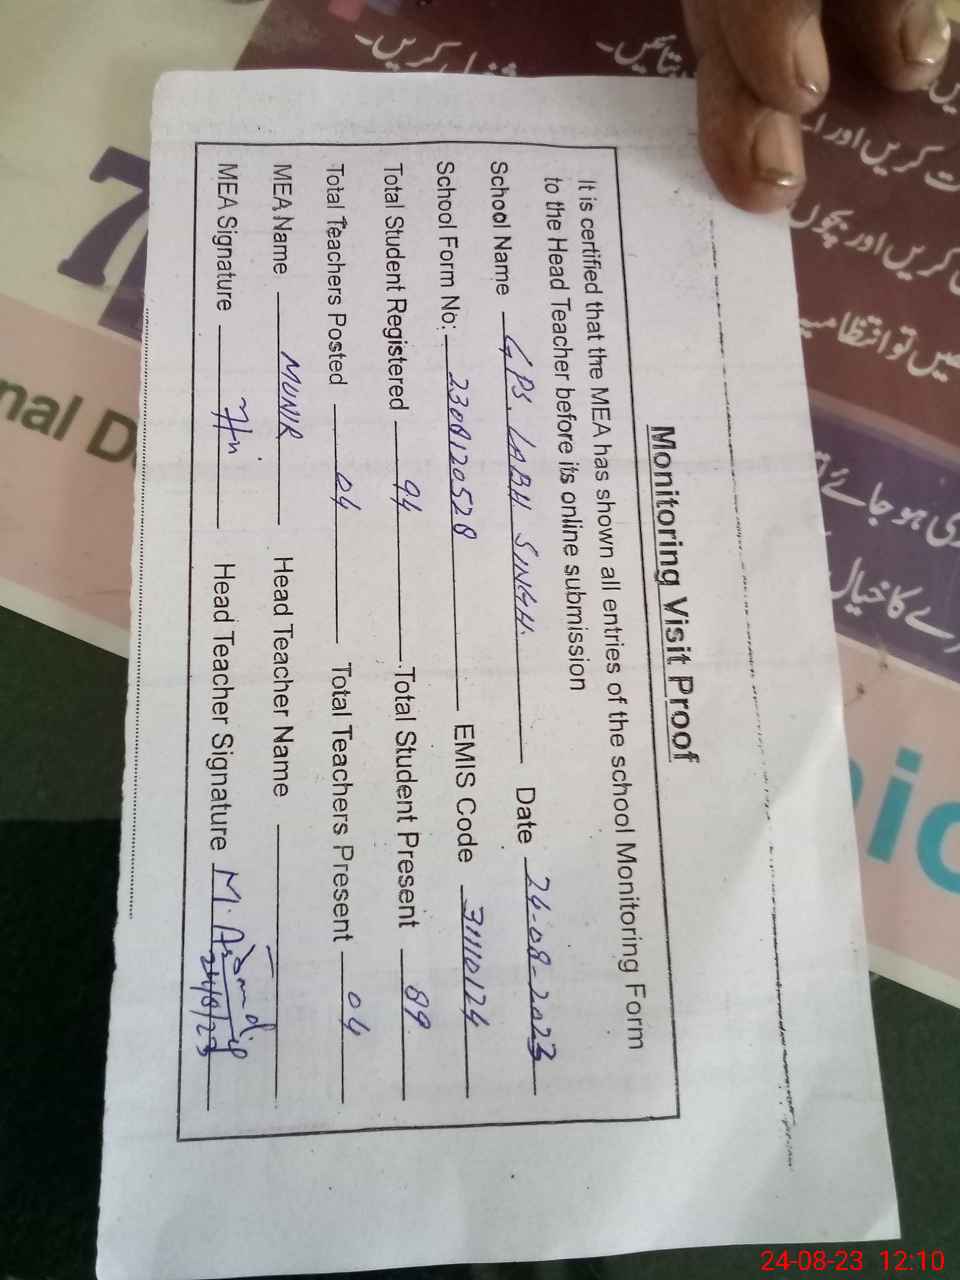 Monitoring Visit Proof
It is certified that the MEA has shown all entries of the school Monitoring Form
to the Head Teacher before its online submission
School Name GPS. LABH SINGH. Date 24-08-2023
School Form No: 2308120528 EMIS Code 31110124
Total Student Registered 94 Total Student Present 89
Total Teachers Posted 04 Total Teachers Present 04
MEA Name MUNIR Head Teacher Name
MEA Signature Head Teacher Signature M.
24/8/23
7
nal D
nic
کریں۔
بتائیں۔
کریں اور
کریں اور بچوں
تو انتظامیہ
ہو جائے
کا خیال
24-08-23 12:10